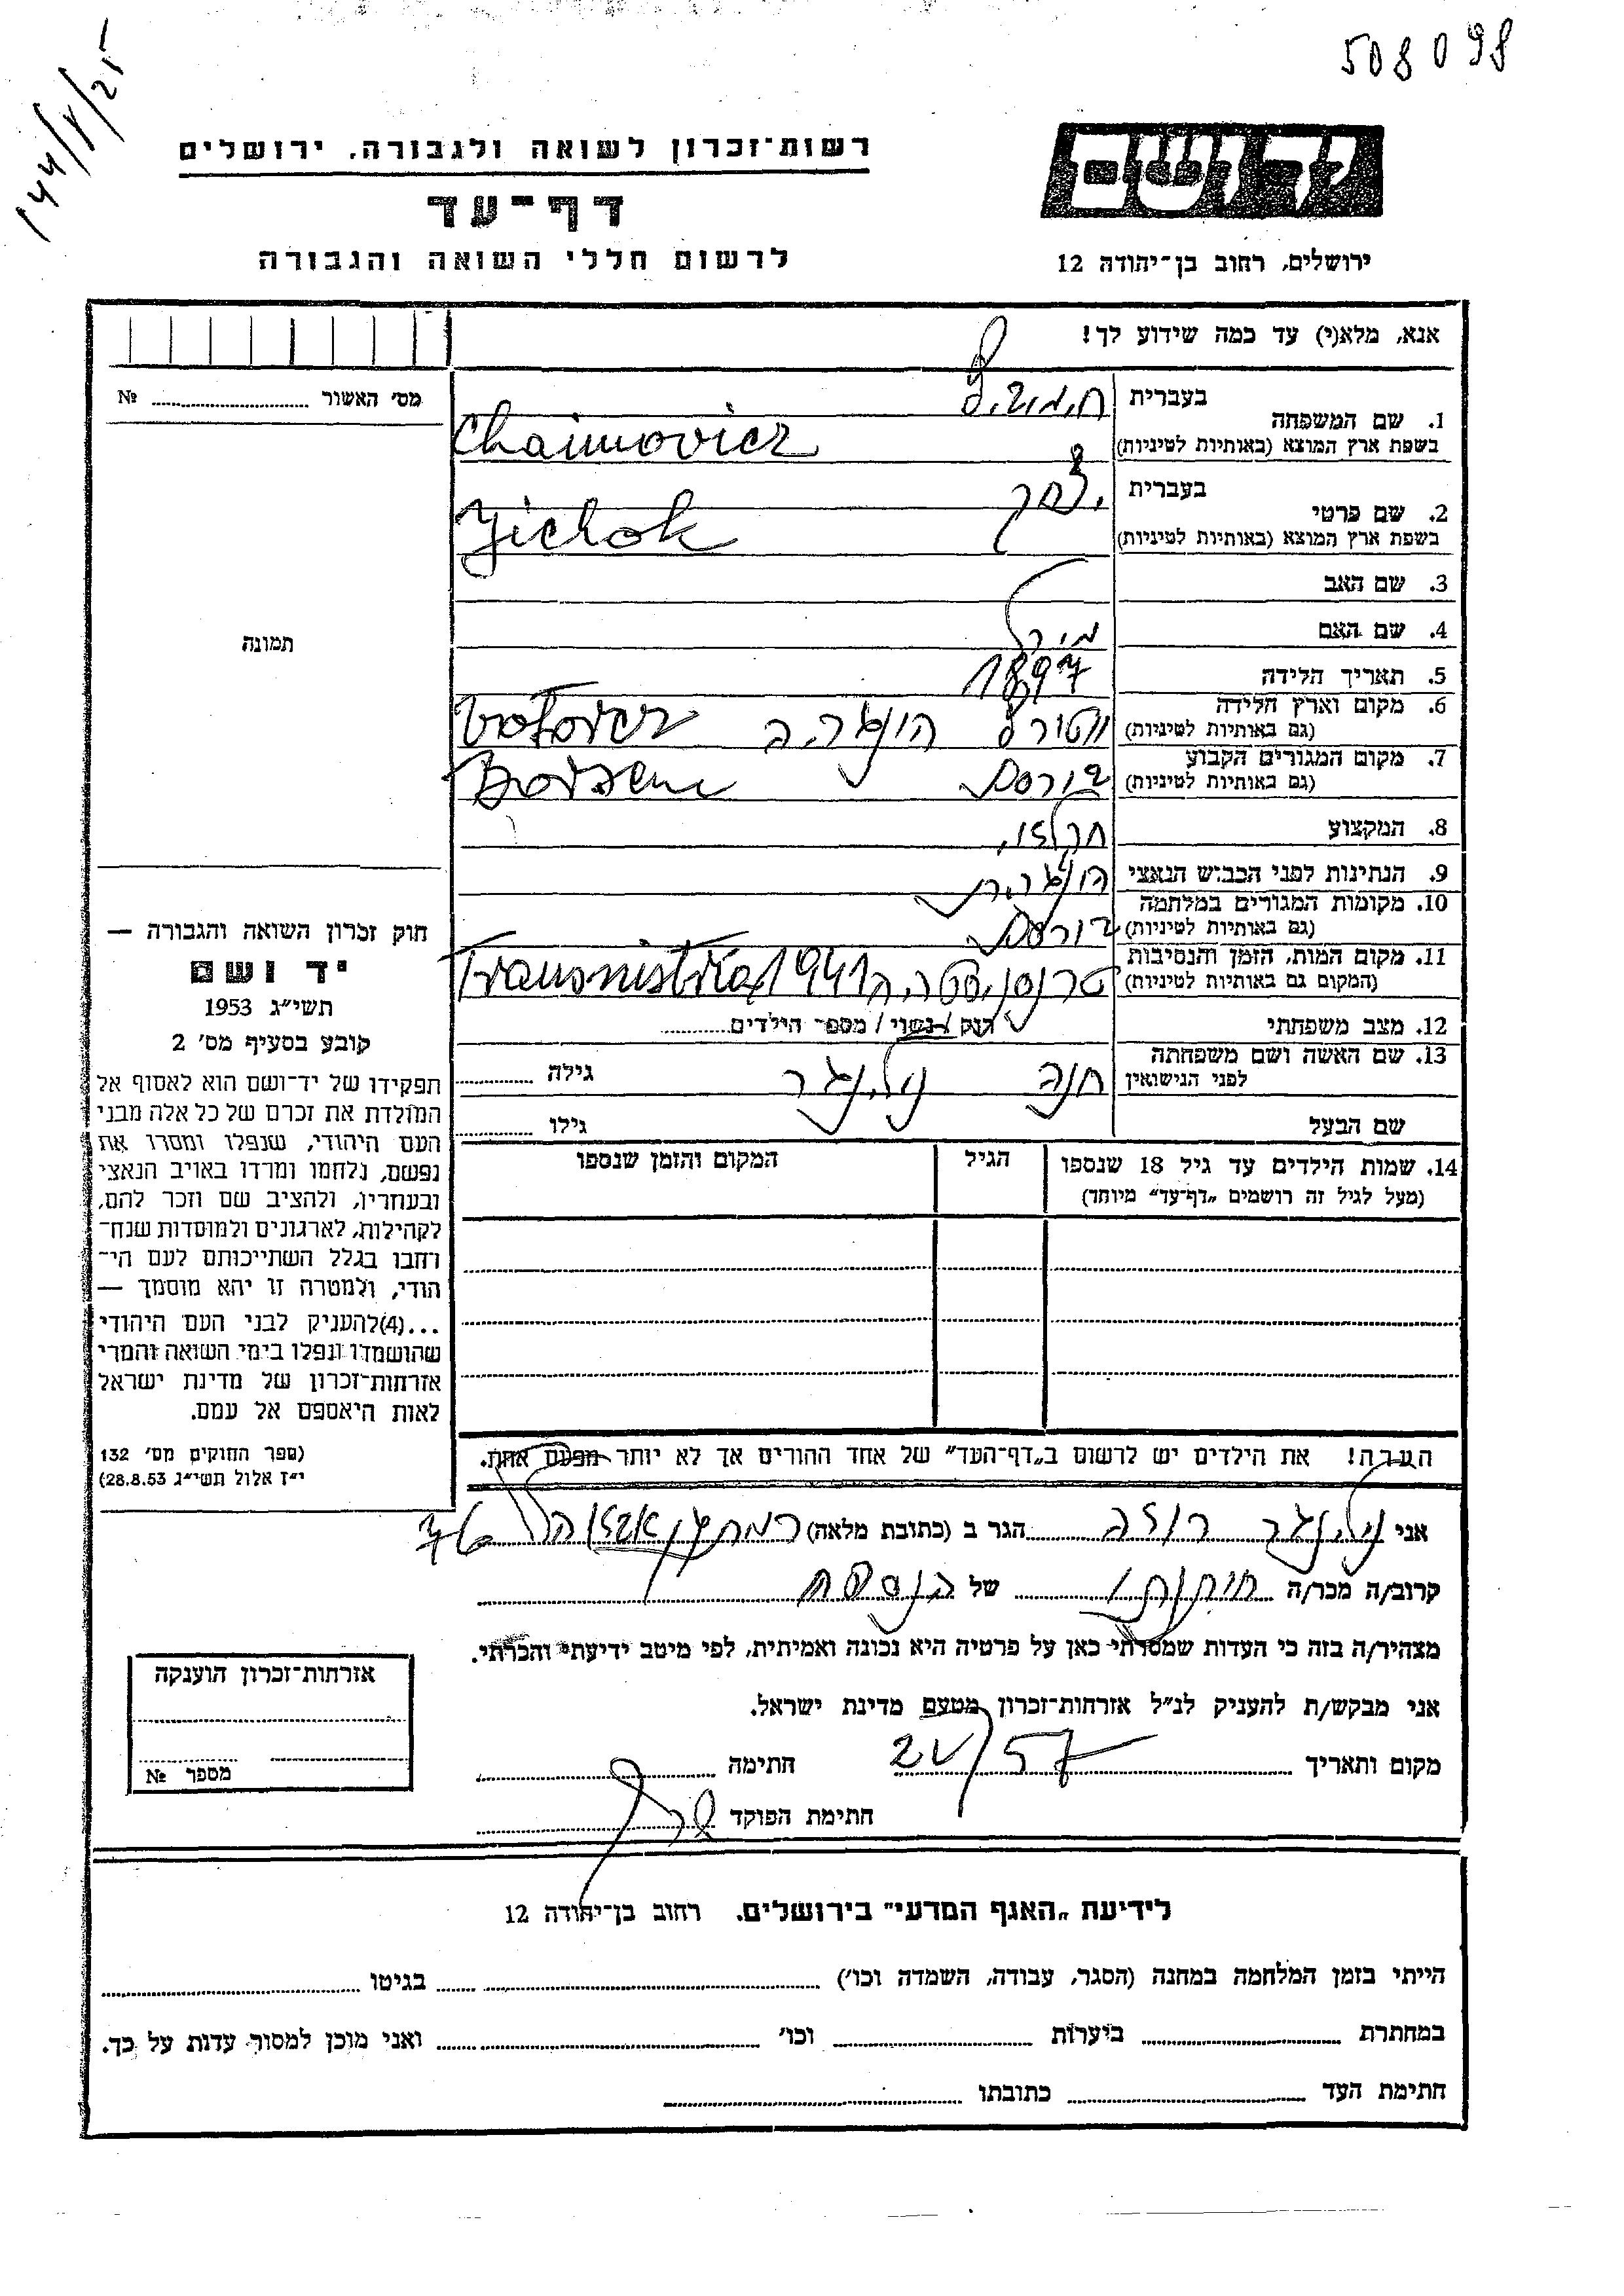 508098
144/8/25
רשות־זכרון לשואה ולגבורה. ירושלים
דף־עד
לרשום חללי השואה והגבורה
יד ושם
ירושלים, רחוב בן־יהודה 12
אנא, מלא(י) עד כמה שידוע לך!
מס׳ האשור № 
תמונה
1. שם המשפחה
בעברית
בשפת ארץ המוצא (באותיות לטיניות) Chaimovicz
2. שם פרטי
בעברית יצחק
בשפת ארץ המוצא (באותיות לטיניות)
3. שם האב
4. שם האם
5. תאריך הלידה 1897
6. מקום וארץ הלידה
(גם באותיות לטיניות) הונגריה
7. מקום המגורים הקבוע
(גם באותיות לטיניות)
8. המקצוע
9. הנתינות לפני הכבוש הנאצי הונגרית
10. מקומות המגורים במלחמה
(גם באותיות לטיניות)
11. מקום המות, הזמן והנסיבות
(המקום גם באותיות לטיניות) טרנסניסטריה 1941 Transnistria
12. מצב משפחתי רווק / נשוי / מספר הילדים
13. שם האשה ושם משפחתה
לפני הנישואין חנה גילה
שם הבעל גילו
14. שמות הילדים עד גיל 18 שנספו
(מעל לגיל זה רושמים „דף־עד״ מיוחד)
הגיל
המקום והזמן שנספו
הערה! את הילדים יש לרשום ב„דף־העד״ של אחד ההורים אך לא יותר מפעם אחת.
חוק זכרון השואה והגבורה —
יד ושם
תשי״ג 1953
קובע בסעיף מס׳ 2
תפקידו של יד־ושם הוא לאסוף אל
המולדת את זכרם של כל אלה מבני
העם היהודי, שנפלו ומסרו את
נפשם, נלחמו ומרדו באויב הנאצי
ובעוזריו, ולהציב שם וזכר להם,
לקהילות, לארגונים ולמוסדות שנח־
רחבו בגלל השתייכותם לעם הי־
הודי, ולמטרה זו יהא מוסמך —
...(4)להעניק לבני העם היהודי
שהושמדו ונפלו בימי השואה והמרי
אזרחות־זכרון של מדינת ישראל
לאות היאספם אל עמם.
(ספר החוקים מס׳ 132
י״ז אלול תשי״ג 28.8.53)
אני רוזה הגר ב (כתובת מלאה)
קרוב/ה מכר/ה של
מצהיר/ה בזה כי העדות שמסרתי כאן על פרטיה היא נכונה ואמיתית, לפי מיטב ידיעתי והכרתי.
אני מבקש/ת להעניק לנ״ל אזרחות־זכרון מטעם מדינת ישראל.
מקום ותאריך חתימה
חתימת הפוקד
אזרחות־זכרון הוענקה
מספר №
לידיעת „האגף המדעי״ בירושלים. רחוב בן־יהודה 12
הייתי בזמן המלחמה במחנה (הסגר, עבודה, השמדה וכו׳) בגיטו
במחתרת ביערות וכו׳ ואני מוכן למסור עדות על כך.
חתימת העד כתובתו